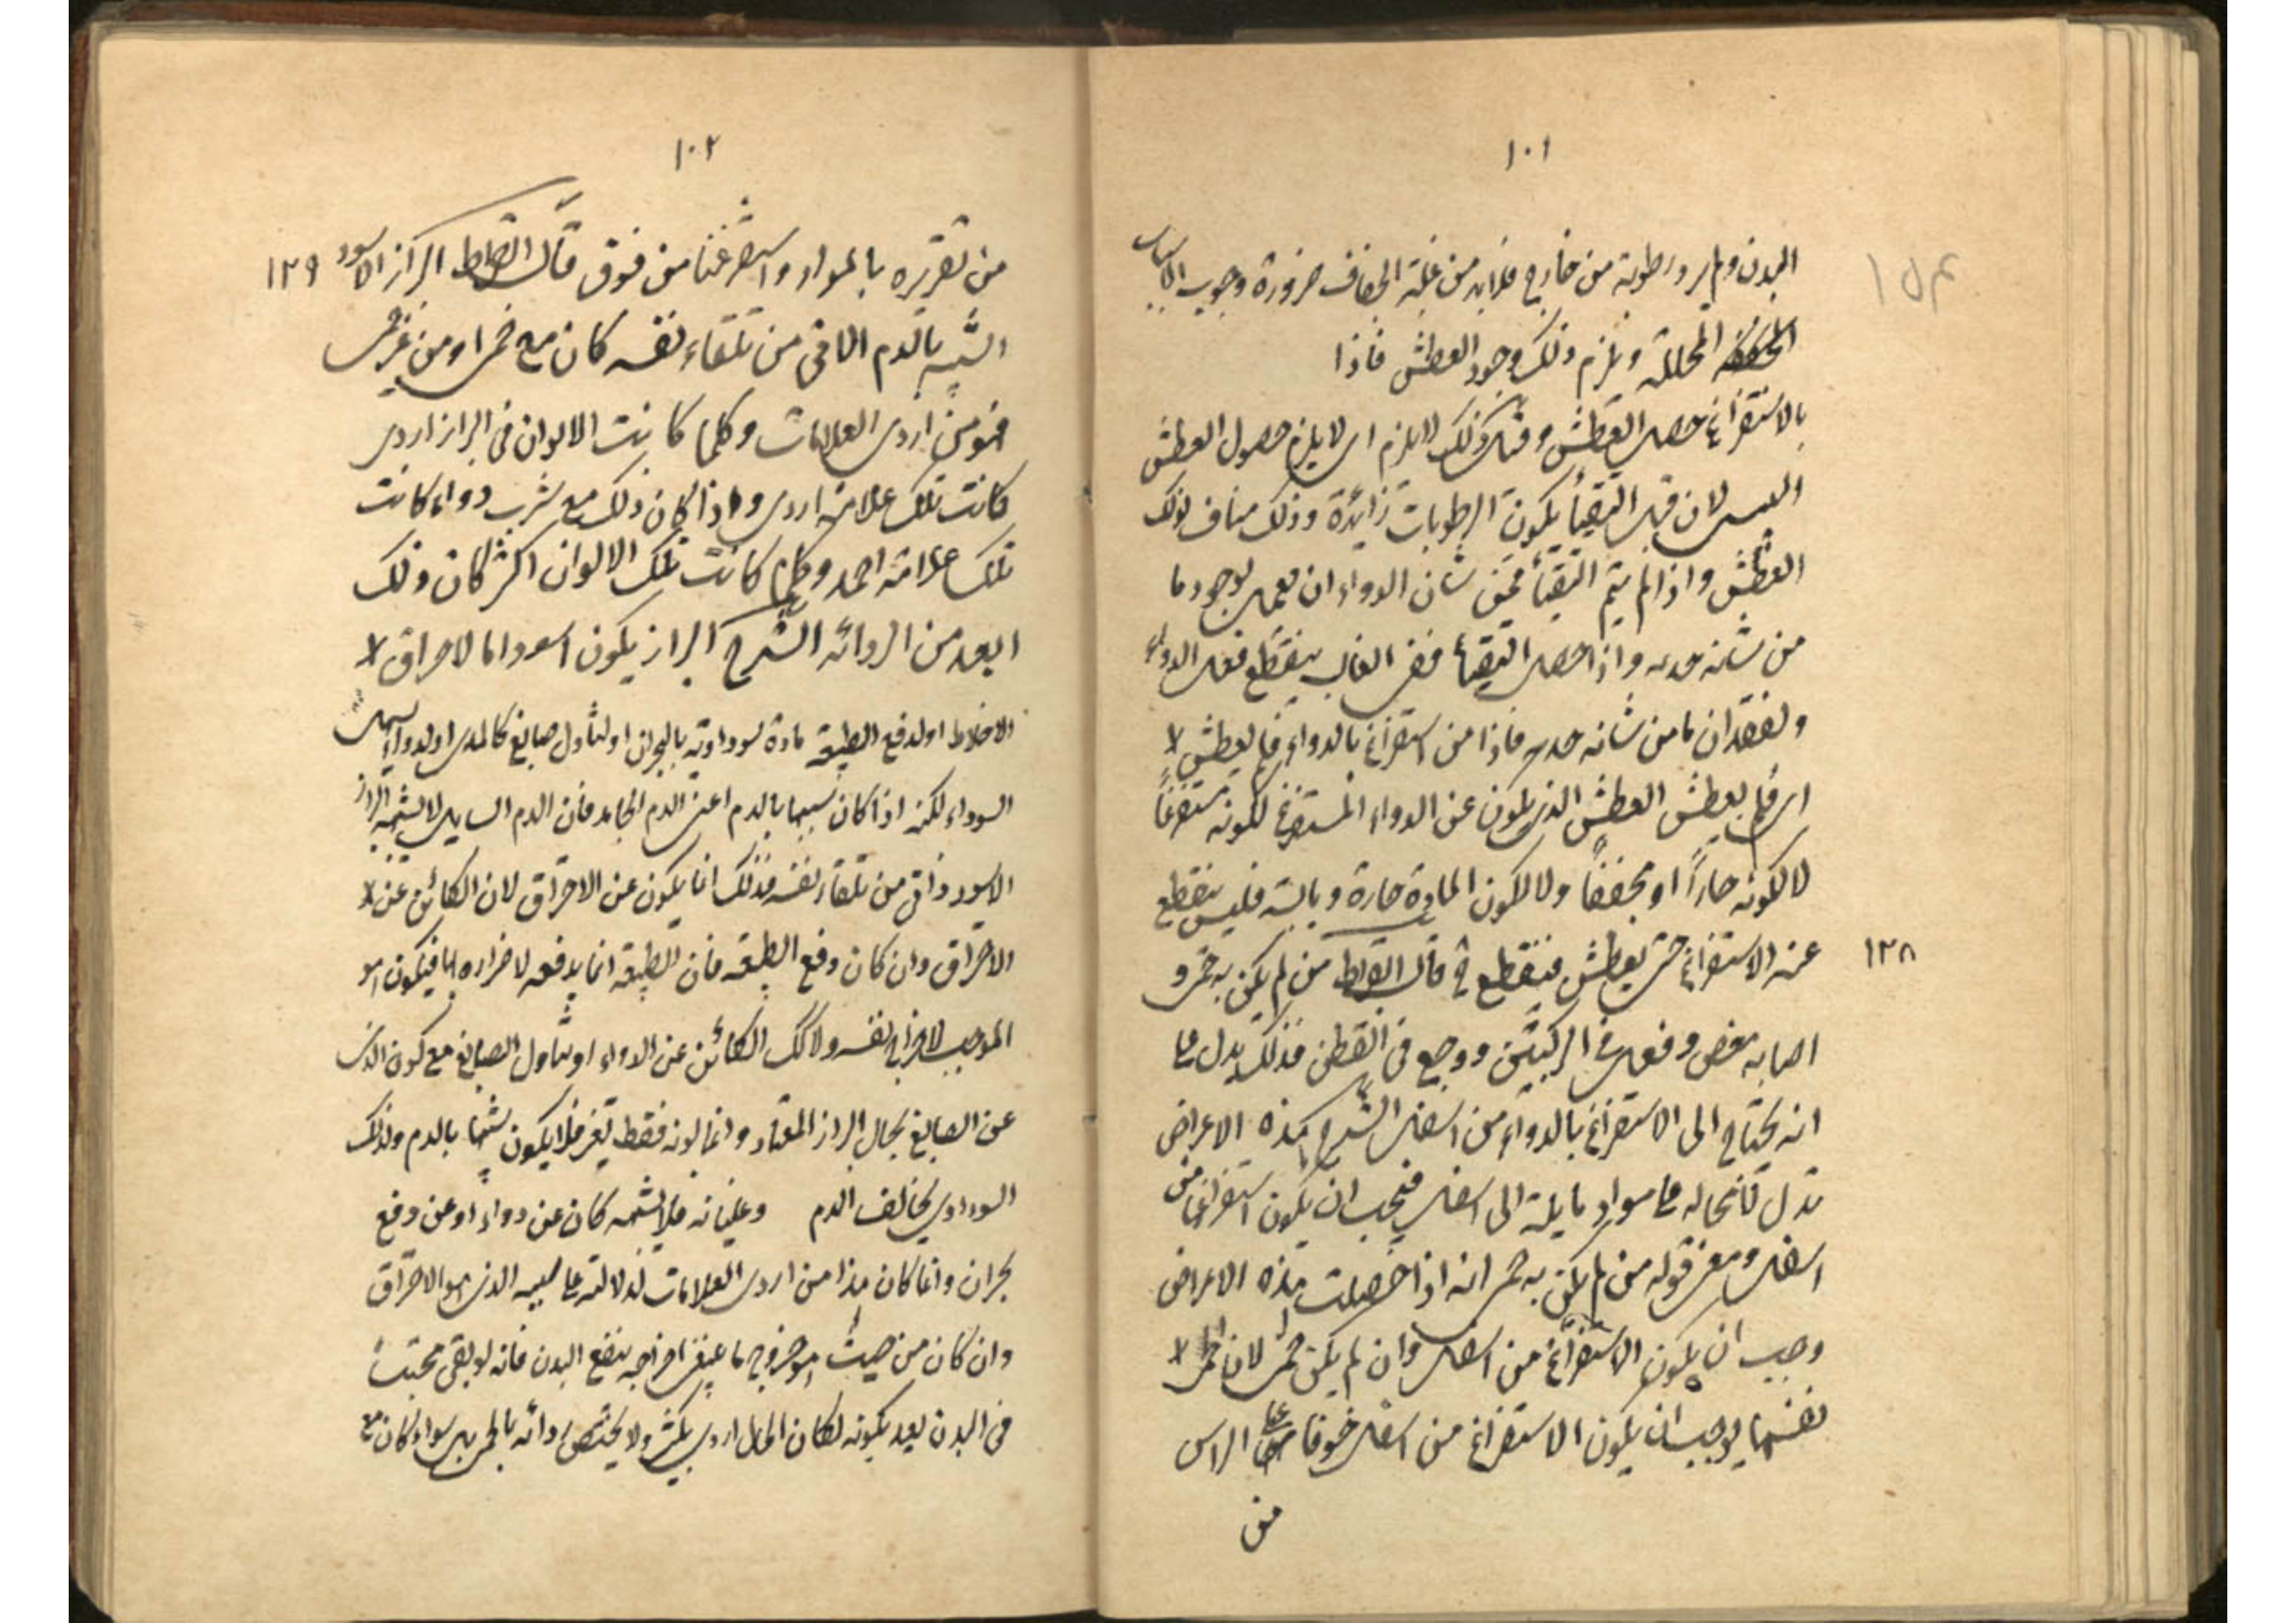 ١٠١
البدن ولم يرد رطوبة من خارج فلابد من غلبة الجفاف ضرورة وجوب الاسباب
المجففة المحللة ويلزم ذلك وجود العطش فاذا
بالاستفراغ حصل العطش وقبل ذلك لا يلزم اى لا يلزم حصول العطش
لان قبل التقيأ يكون الرطوبات زائدة وذلك مناف لذلك
العطش واذا لم يتم التقيأ فمن شان الدواء ان يعمل لوجود ما
من شانه جذبه واذا حصل التقيأ ففى الغالب ينقطع فعل الدواء
ولفقدان ما من شانه جذبه فاذا من استفراغ بالدواء فلم يعطش لا
اى فلم يعطش العطش الذى يكون عن الدواء المستفرغ لكونه مستفرغاً
لا لكونه حاراً او مجففاً ولا لكون المادة حارة ويابسة فليس ينقطع
١٢٨
عنه الاستفراغ حتى يعطش فينقطع ح قال ابقراط من لم يكن به حمى و
اصابه مغص وثقل فى الركبتين ووجع فى القطن فذلك يدل على
انه يحتاج الى الاستفراغ بالدواء من اسفل الشرح هذه الاعراض
تدل لا محاله على مواد مايلة الى اسفل فيجب ان يكون استفراغها من
اسفل ومعنى قوله من لم يكن به حمى انه اذا حصلت هذه الاعراض
وجب ان يكون الاستفراغ من اسفل وان لم يكن حمى لان الحمى لا
نفسها يوجب ان يكون الاستفراغ من اسفل خوفا على الراس
من
١٠٢
من تضرره بالمواد واستفرغنا من فوق قال ابقراط البراز الاسود ١٢٩
الشبيه بالدم الاتى من تلقاء نفسه كان مع حمى او من غير حمى
فهو من اردى العلامات وكلما كانت الالوان فى البراز اردى
كانت تلك علامة اردى واذا كان ذلك مع شرب دواء كانت
تلك علامة احمد وكلما كانت تلك الالوان اكثر كان ذلك
ابعد من الردائه الشرح البراز يكون اسود اما لاحراق لا
الاخلاط او لدفع الطبيعة مادة سوداوية بالبحران او لتناول صابغ كالمرى او لدواء يسهل
السوداء لكنه اذا كان شبيها بالدم اعنى الدم الجامد فان الدم السايل لا يشبه البراز
الاسود واتى من تلقاء نفسه فذلك انما يكون عن الاحراق لان الكائن عن لا
الاحراق وان كان دفع الطبيعة فان الطبيعة انما يدفعه لاضراره بها فيكون هو
الموجب لاخراج نفسه ولا كك الكائن عن الدواء او تناول الصابغ مع كون الذى
عن الصابغ بحال البراز المعتاد وانما لونه فقط تغير فلا يكون شبيها بالدم وكذلك
السوداوى يخالف الدم وغليانه فلا يشبهه كان عن دواء او عن دفع
بحران وانما كان هذا من اردى العلامات لدلالته على سببه الذى هو الاحراق
وان كان من حيث هو خروج ما ينبغى اخراجه ينفع البدن فانه لو بقى محتبساً
فى البدن بعد تكونه لكان الحال اردى بكثير ولا يختص ردائه بالحمى بل سواء كان مع